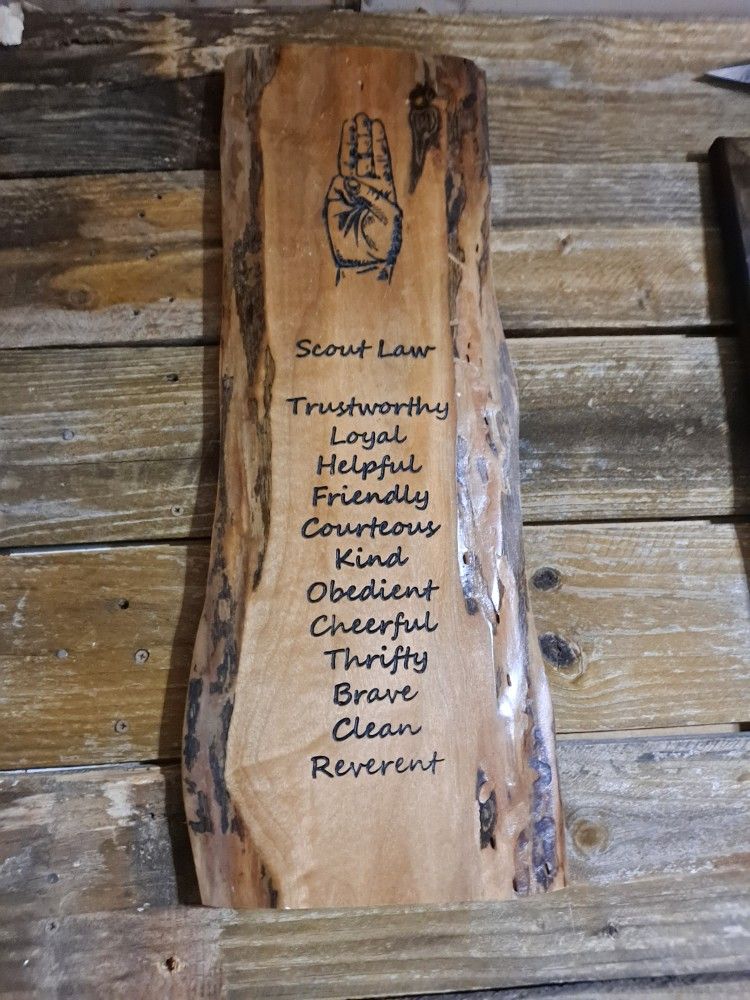 Scout Law
Trustworthy
Loyal
Helpful
Friendly
Courteous
Kind
Obedient
Cheerful
Thrifty
Brave
Clean
Reverent